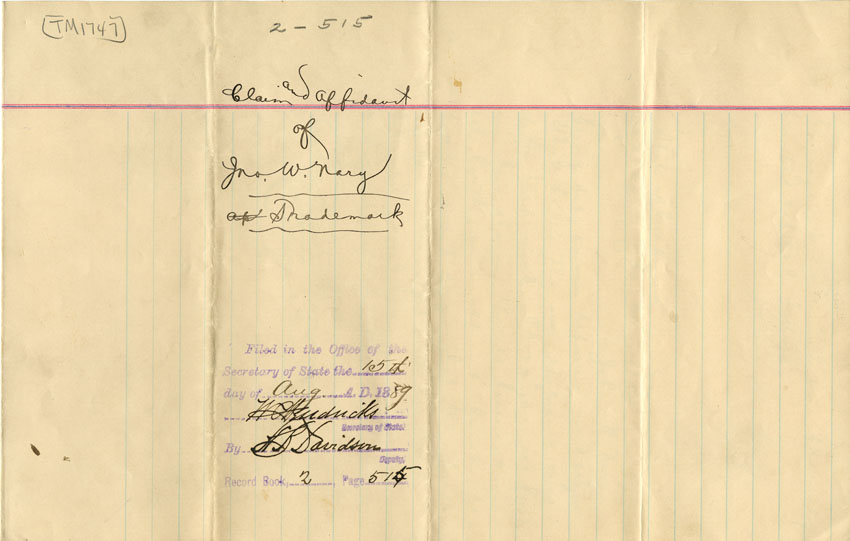 [TM1747]
2-515
Claim and Affidavit
of
Jno. W. Nary
Trademark
Filed in the Office of the
Secretary of State the 15th
day of Aug A. D. 1889
W C Hendricks
Secretary of State.
By H B Davidson
Deputy.
Record Book, 2, Page 515